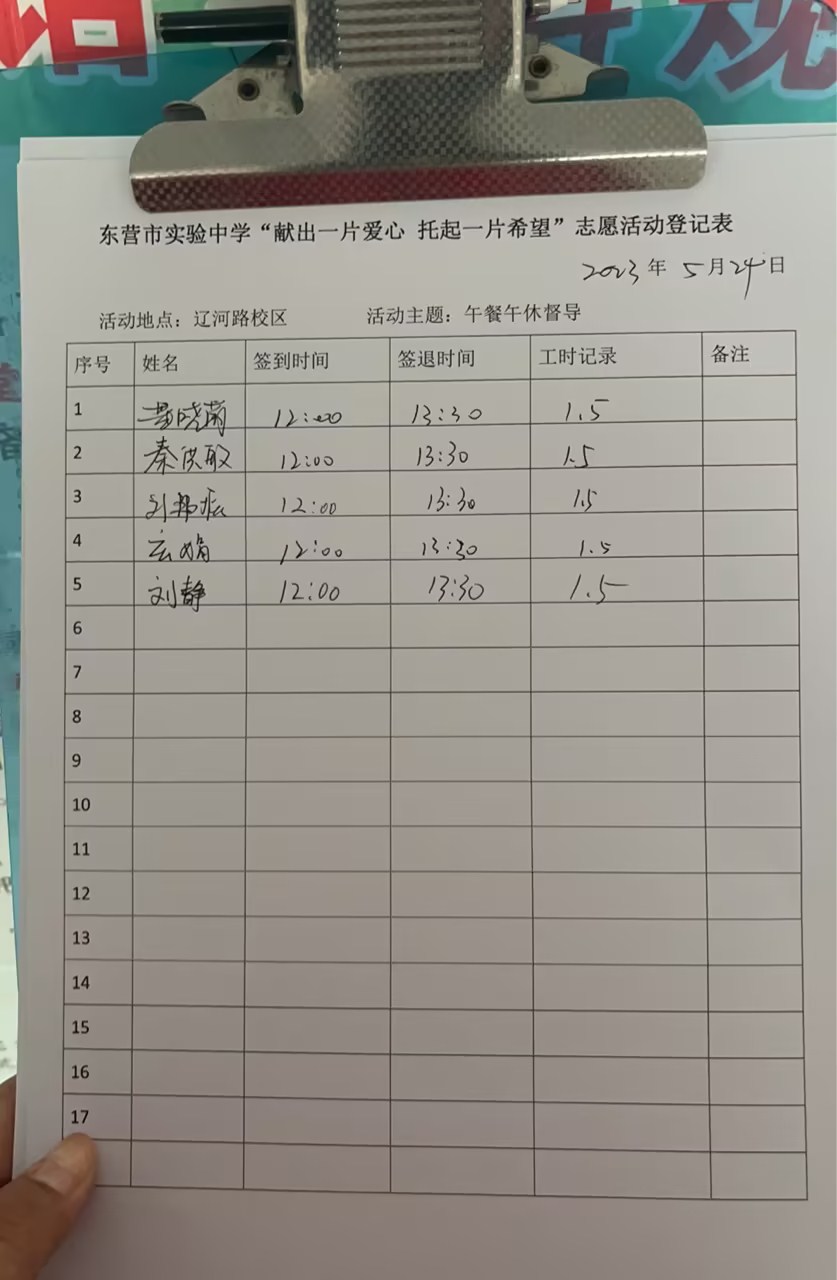 东营市实验中学“献出一片爱心 托起一片希望”志愿活动登记表
2023年 5月24日
活动地点：辽河路校区 活动主题：午餐午休督导
序号 姓名 签到时间 签退时间 工时记录 备注
1 12:00 13:30 1.5
2 秦洪敏 12:00 13:30 1.5
3 12:00 13:30 1.5
4 12:00 13:30 1.5
5 刘静 12:00 13:30 1.5
6
7
8
9
10
11
12
13
14
15
16
17